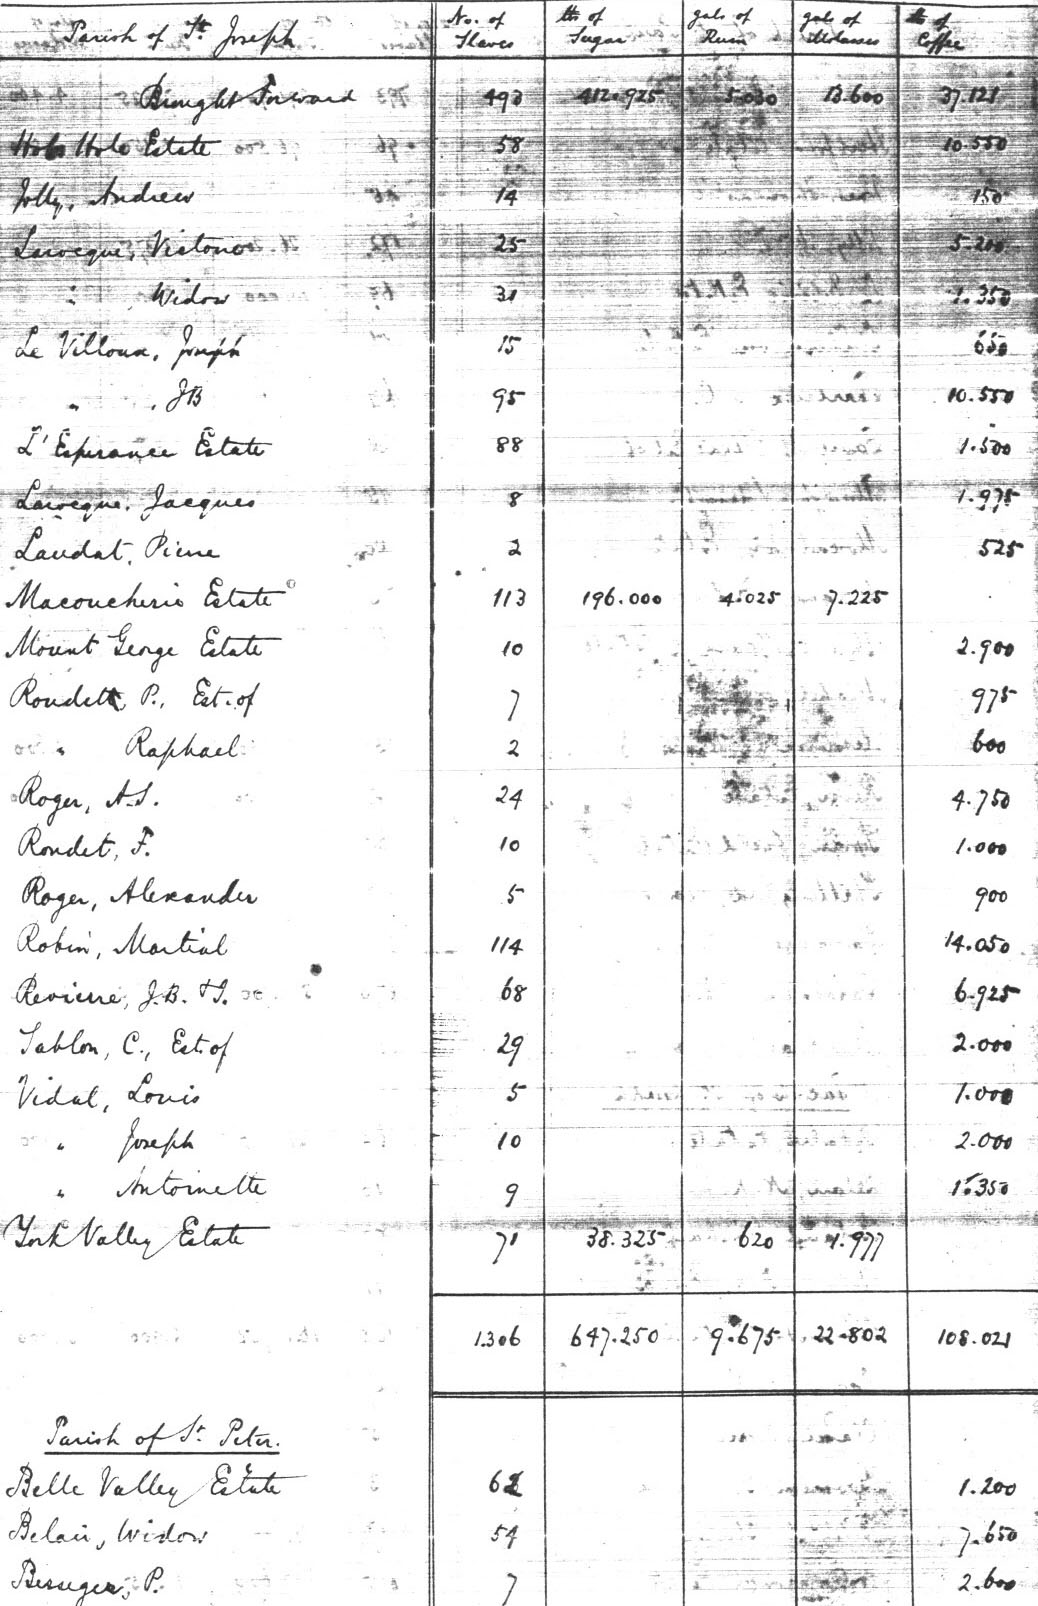 Parish of St. Joseph No. of Slaves lbs of Sugar gals of Rum gals of Molasses lbs of Coffee
Brought Forward 493 412.925 5.030 13.600 37.121
Hole Estate 58 10.550
Jolly, Andrew 14 150
Larocque, 25 5.200
" Widow 31 1.350
Le Villoux, Joseph 15 650
" , JB 95 10.550
L'Esperance Estate 88 1.500
Larocque, Jacques 8 1.975
Laudat, Pierre 2 525
Macoucherie Estate 113 196.000 4.025 7.225
Mount George Estate 10 2.900
Roudett, P., Est. of 7 975
" Raphael 2 600
Roger, A.S. 24 4.750
Roudet, F. 10 1.000
Roger, Alexander 5 900
Robin, Martial 114 14.050
Revierre, J.B. & J. 68 6.925
Sablon, C., Est. of 29 2.000
Vidal, Louis 5 1.000
" Joseph 10 2.000
" Antoinette 9 1.350
York Valley Estate 71 38.325 620 1.977
1.306 647.250 9.675 22.802 108.021
Parish of St. Peter.
Belle Valley Estate 62 1.200
Belair, Widow 54 7.650
P. 7 2.600